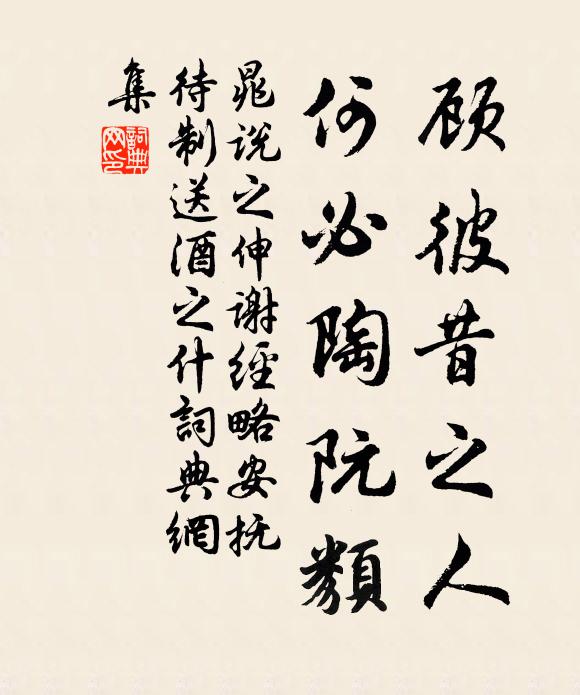 顾彼昔之人
何必陶阮類
晁说之伸谢經略安抚
待制送酒之什詞典網
集
詞典
网印